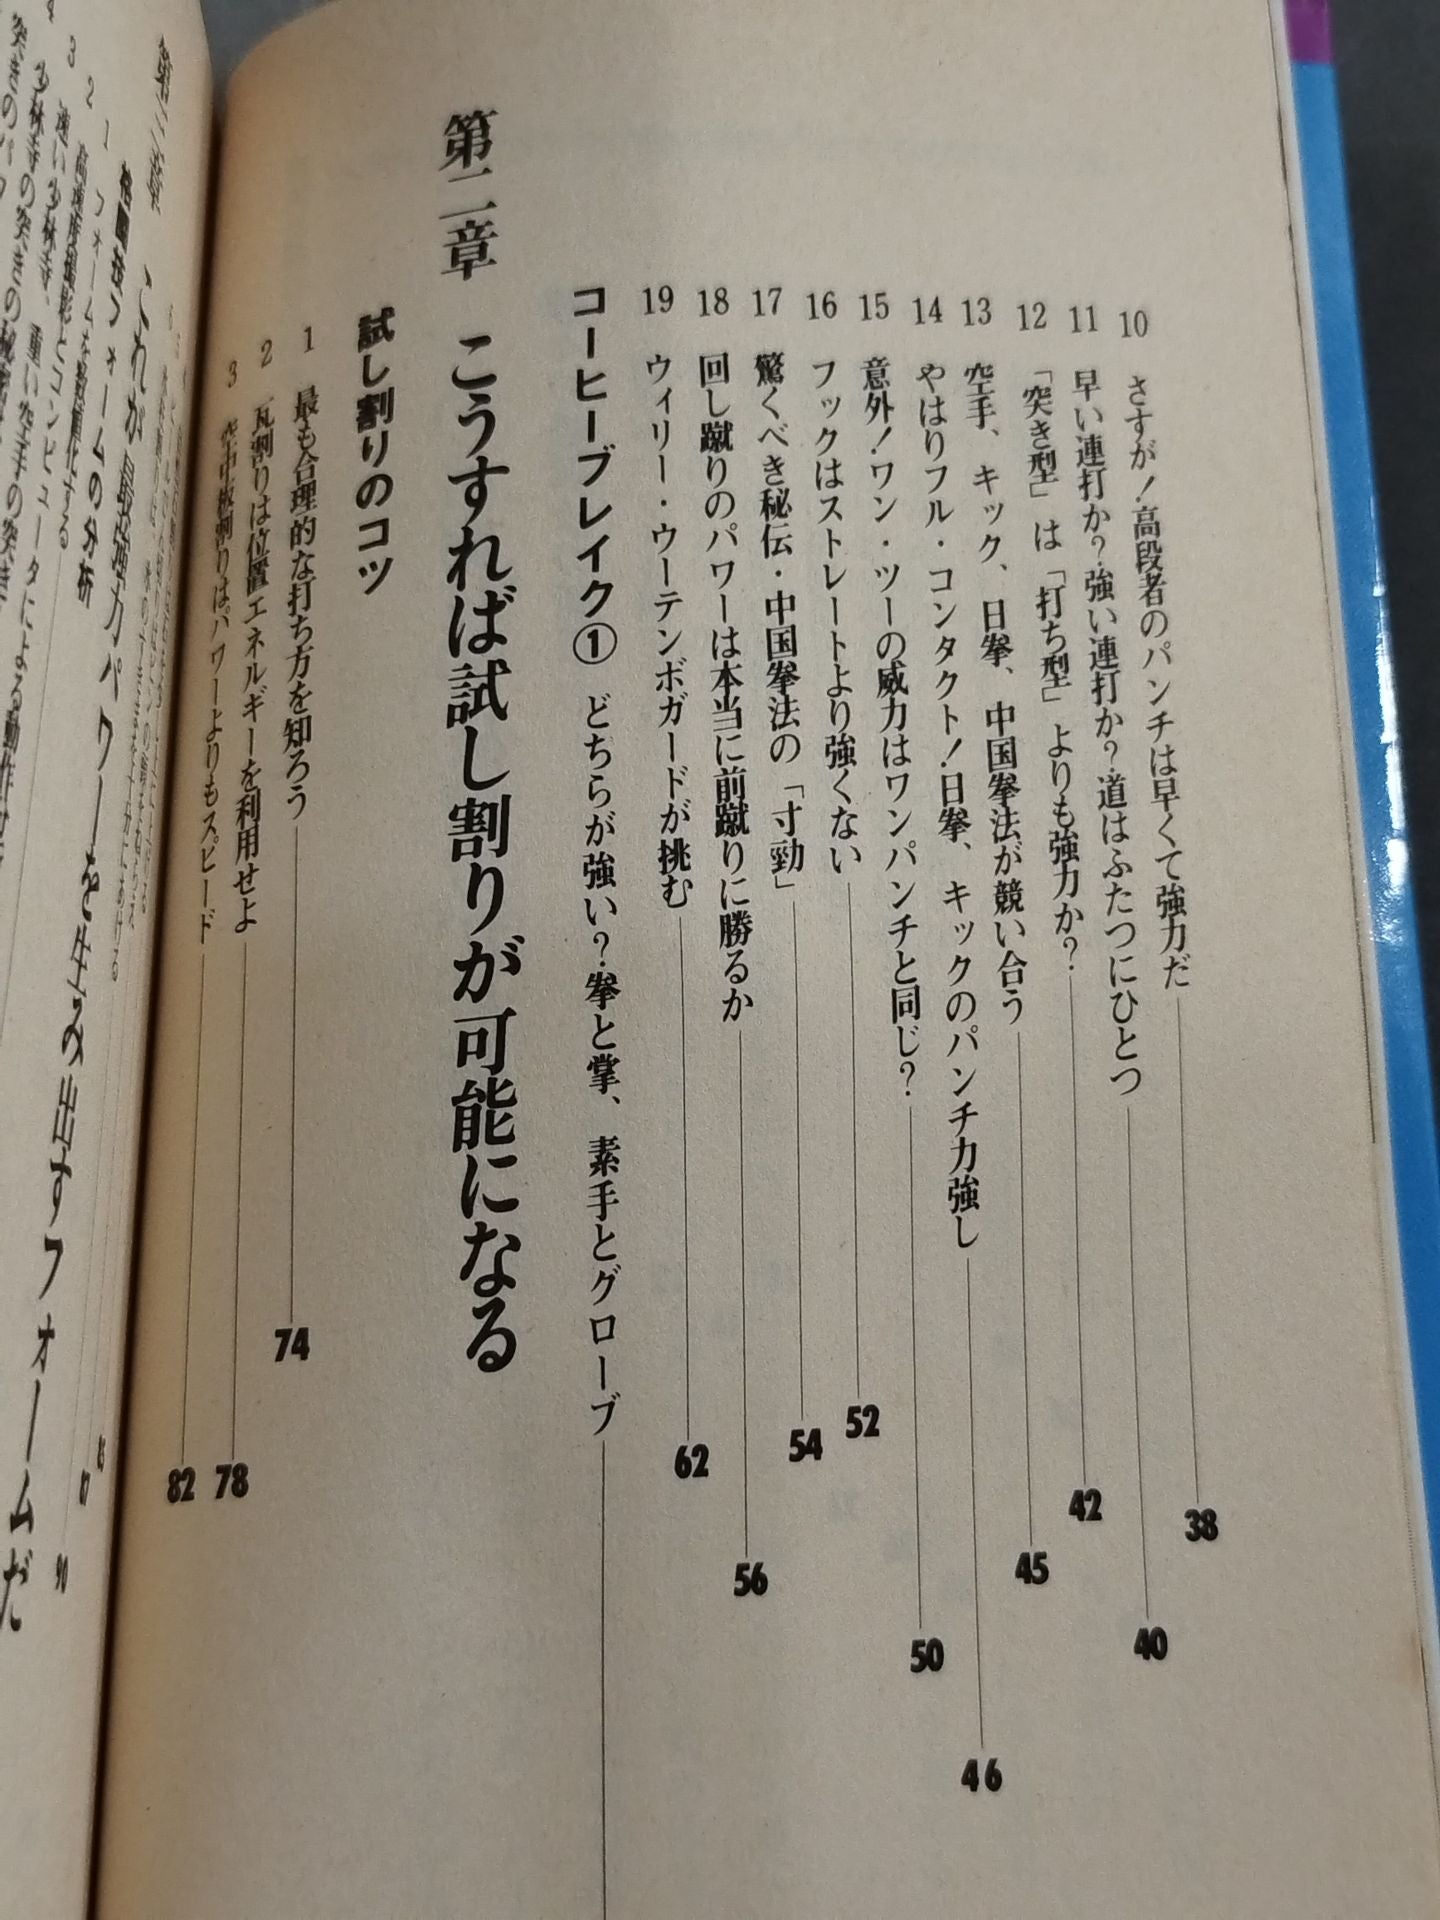 10 さすが!高段者のパンチは早くて強力だ 38
11 早い連打か?強い連打か?道はふたつにひとつ 40
12 「突き型」は「打ち型」よりも強力か? 42
13 空手、キック、日拳、中国拳法が競い合う 45
14 やはりフル・コンタクト!日拳、キックのパンチ力強し 46
15 意外!ワン・ツーの威力はワンパンチと同じ? 50
16 フックはストレートより強くない 52
17 驚くべき秘伝・中国拳法の「寸勁」 54
18 回し蹴りのパワーは本当に前蹴りに勝るか 56
19 ウィリー・ウーテンボガードが挑む 62
コーヒーブレイク① どちらが強い?拳と掌、素手とグローブ
第二章 こうすれば試し割りが可能になる
試し割りのコツ
1 最も合理的な打ち方を知ろう 74
2 瓦割りは位置エネルギーを利用せよ 78
3 空中板割りはパワーよりもスピード 82
第三章 これが最強力パワーを生み出すフォームだ
格闘技フォームの分析
1 フォームを数量化する
2 高速度撮影とコンピュータによる動作分析
3 速い少林寺、重い空手の突き
少林寺の突きの秘密